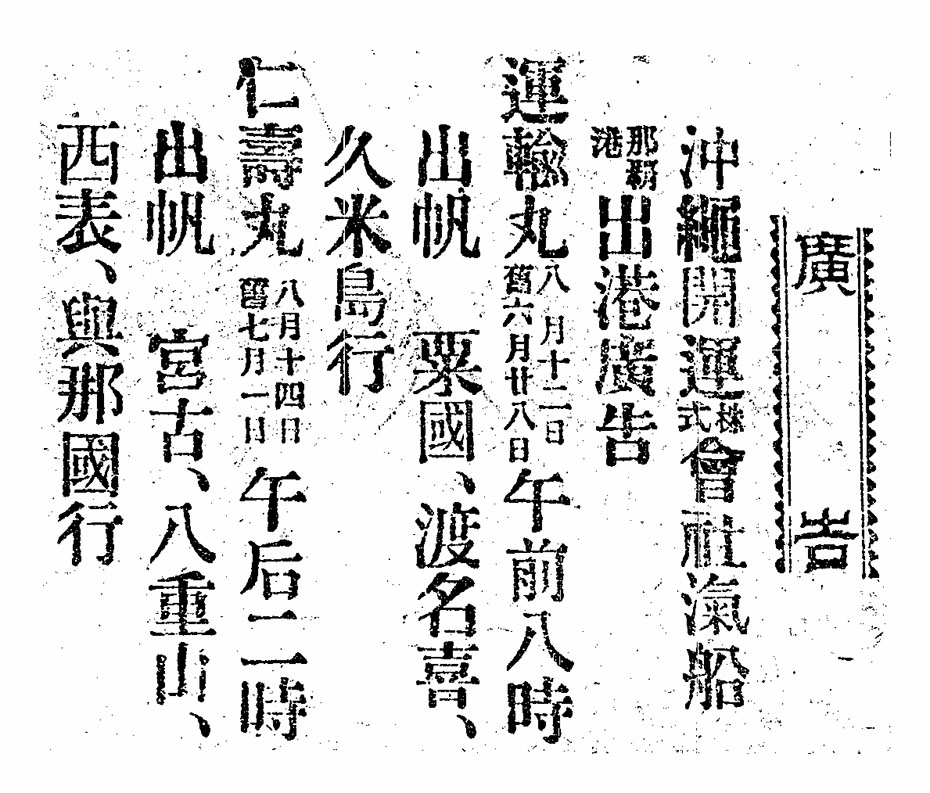 廣告
沖繩開運株式會社滊船
那覇港出港廣告
運輸丸八月十二日舊六月廿八日午前八時
出帆 粟國、渡名喜、
久米島行
仁壽丸八月十四日舊七月一日午后二時
出帆 宮古、八重山、
西表、與那國行